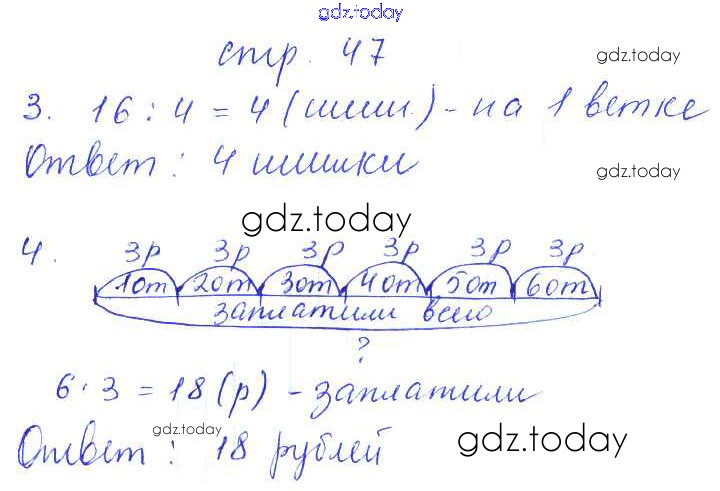 gdz.today
стр. 47
gdz.today
3. 16 : 4 = 4 (шиш.) - на 1 ветке
Ответ: 4 шишки
gdz.today
gdz.today
4. 3р 3р 3р 3р 3р 3р
1от 2от 3от 4от 5от 6от
заплатили всего
?
6 · 3 = 18 (р) - заплатили
Ответ: 18 рублей
gdz.today
gdz.today